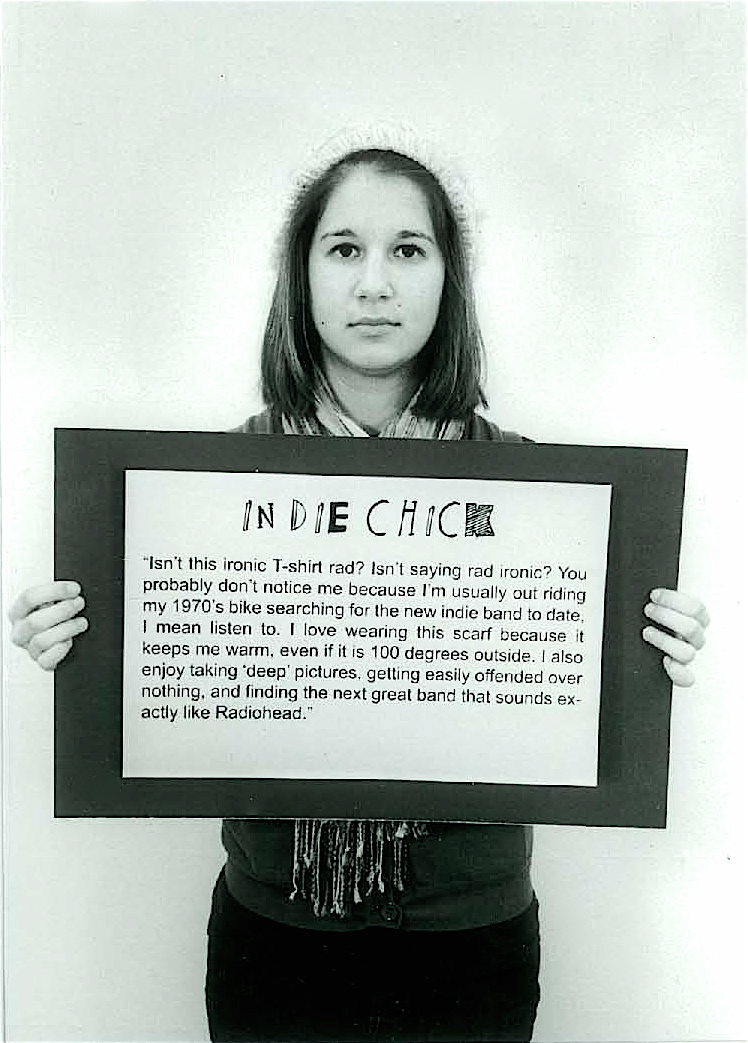 INDIE CHICK
“Isn’t this ironic T-shirt rad? Isn’t saying rad ironic? You
probably don’t notice me because I’m usually out riding
my 1970’s bike searching for the new indie band to date,
I mean listen to. I love wearing this scarf because it
keeps me warm, even if it is 100 degrees outside. I also
enjoy taking ‘deep’ pictures, getting easily offended over
nothing, and finding the next great band that sounds ex-
actly like Radiohead.”